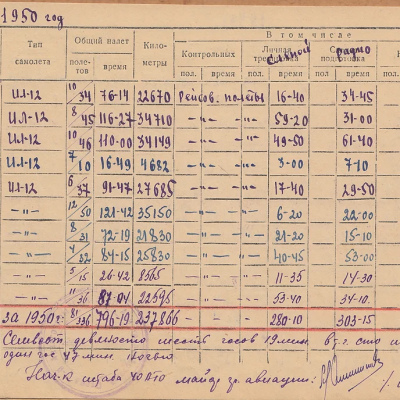 1950 год
В том числе
Тип самолета Общий налет Кило- метры Контрольных Личная слепой радио
полетов время пол. время пол. время пол. время
Ил-12 10/34 76-14 22670 Рейсов. полеты 16-40 34-45
Ил-12 8/45 116-27 34710 -"- -"- 59-20 31-00
Ил-12 10/46 110-00 34149 -"- -"- 49-50 61-40
Ил-12 7/10 16-49 4682 -"- -"- 3-00 7-10
Ил-12 6/37 91-47 27685 -"- -"- 17-40 29-50
-"- 12/50 121-42 35150 -"- -"- 6-20 22-00
-"- 8/31 72-19 21830 -"- -"- 21-20 15-10
-"- 4/32 84-15 25830 -"- -"- 40-45 53-00
-"- 5/15 26-42 8565 -"- -"- 11-35 14-30
-"- /36 22595 -"- -"- 53-40 34-10
за 1950г. 81/336 796-19 237866 280-10 303-15
Семьсот девяносто шесть часов 19 мин. в т.ч. сто
один час 47 мин. ночью
Нач-к штаба майор авиации